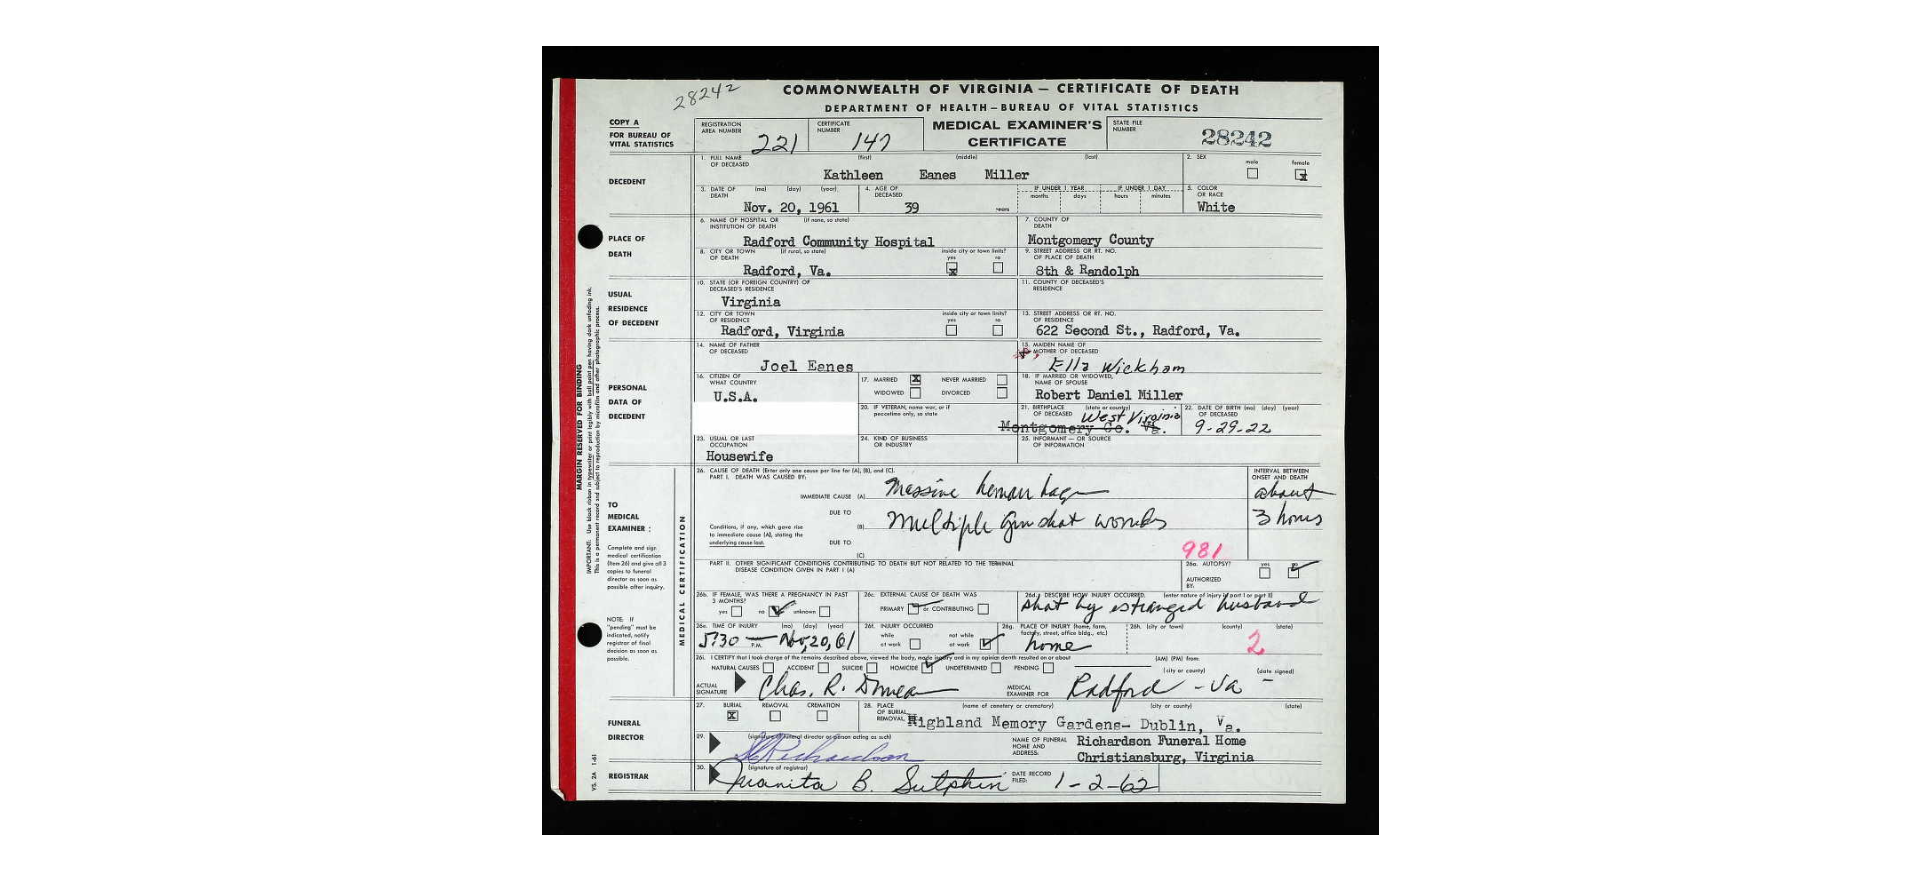 28242
COMMONWEALTH OF VIRGINIA — CERTIFICATE OF DEATH
DEPARTMENT OF HEALTH — BUREAU OF VITAL STATISTICS
COPY A
FOR BUREAU OF
VITAL STATISTICS
REGISTRATION AREA NUMBER 221
CERTIFICATE NUMBER 147
MEDICAL EXAMINER'S CERTIFICATE
STATE FILE NUMBER 28242
DECEDENT
1. FULL NAME OF DECEASED (first) (middle) (last)
Kathleen Eanes Miller
2. SEX male female x
3. DATE OF DEATH (mo) (day) (year)
Nov. 20, 1961
4. AGE OF DECEASED
39 years
IF UNDER 1 YEAR months days
IF UNDER 1 DAY hours minutes
5. COLOR OR RACE
White
PLACE OF DEATH
6. NAME OF HOSPITAL OR INSTITUTION OF DEATH (if none, so state)
Radford Community Hospital
7. COUNTY OF DEATH
Montgomery County
8. CITY OR TOWN OF DEATH (if rural, so state)
Radford, Va.
inside city or town limits? yes x no
9. STREET ADDRESS OR RT. NO. OF PLACE OF DEATH
8th & Randolph
USUAL RESIDENCE OF DECEDENT
10. STATE (OR FOREIGN COUNTRY) OF DECEASED'S RESIDENCE
Virginia
11. COUNTY OF DECEASED'S RESIDENCE
12. CITY OR TOWN OF RESIDENCE
Radford, Virginia
inside city or town limits? yes no
13. STREET ADDRESS OR RT. NO. OF RESIDENCE
622 Second St., Radford, Va.
PERSONAL DATA OF DECEDENT
14. NAME OF FATHER OF DECEASED
Joel Eanes
15. MAIDEN NAME OF MOTHER OF DECEASED
Ella Wickham
16. CITIZEN OF WHAT COUNTRY
U.S.A.
17. MARRIED X NEVER MARRIED
WIDOWED DIVORCED
18. IF MARRIED OR WIDOWED, NAME OF SPOUSE
Robert Daniel Miller
20. IF VETERAN, name war, or if peacetime only, so state
21. BIRTHPLACE OF DECEASED (state or county)
West Virginia
Montgomery Co. Va.
22. DATE OF BIRTH (mo) (day) (year) OF DECEASED
9-29-22
23. USUAL OR LAST OCCUPATION
Housewife
24. KIND OF BUSINESS OR INDUSTRY
25. INFORMANT — OR SOURCE OF INFORMATION
MARGIN RESERVED FOR BINDING
TO MEDICAL EXAMINER:
Complete and sign
medical certification
(Item 26) and give all 3
copies to funeral
director as soon as
possible after inquiry.
NOTE: If
"pending" must be
indicated, notify
registrar of final
decision as soon as
possible.
MEDICAL CERTIFICATION
26. CAUSE OF DEATH (Enter only one cause per line for (A), (B), and (C).
PART I. DEATH WAS CAUSED BY:
IMMEDIATE CAUSE (A) Massive hemorrhage
INTERVAL BETWEEN ONSET AND DEATH
about
3 hours
DUE TO
Conditions, if any, which gave rise
to immediate cause (A), stating the
underlying cause last.
(B) Multiple gunshot wounds
DUE TO
(C)
981
PART II. OTHER SIGNIFICANT CONDITIONS CONTRIBUTING TO DEATH BUT NOT RELATED TO THE TERMINAL
DISEASE CONDITION GIVEN IN PART I (A)
26a. AUTOPSY? yes no
AUTHORIZED BY:
26b. IF FEMALE, WAS THERE A PREGNANCY IN PAST 3 MONTHS?
yes no unknown
26c. EXTERNAL CAUSE OF DEATH WAS
PRIMARY or CONTRIBUTING
26d. DESCRIBE HOW INJURY OCCURRED. (enter nature of injury in part I or part II)
shot by estranged husband
26e. TIME OF INJURY (mo) (day) (year)
5:30 P.M. Nov, 20, 61
26f. INJURY OCCURRED
while at work not while at work
26g. PLACE OF INJURY (home, farm, factory, street, office bldg., etc.)
home
26h. (city or town) (county) (state)
2
26i. I CERTIFY that I took charge of the remains described above, viewed the body, made inquiry and in my opinion death resulted on or about (AM) (PM) from:
NATURAL CAUSES ACCIDENT SUICIDE HOMICIDE UNDETERMINED PENDING
(city or county) (date signed)
ACTUAL SIGNATURE Chas. R.
MEDICAL EXAMINER FOR Radford - Va
FUNERAL DIRECTOR
27. BURIAL X REMOVAL CREMATION
28. PLACE OF BURIAL REMOVAL, (name of cemetery or crematory) (city or county) (state)
Highland Memory Gardens- Dublin, Va.
29. (signature of funeral director or person acting as such)
Richardson
NAME OF FUNERAL HOME AND ADDRESS:
Richardson Funeral Home
Christiansburg, Virginia
REGISTRAR
30. (signature of registrar)
Juanita B. Sutphin
DATE RECORD FILED:
1-2-62
VS. 2A 1-61